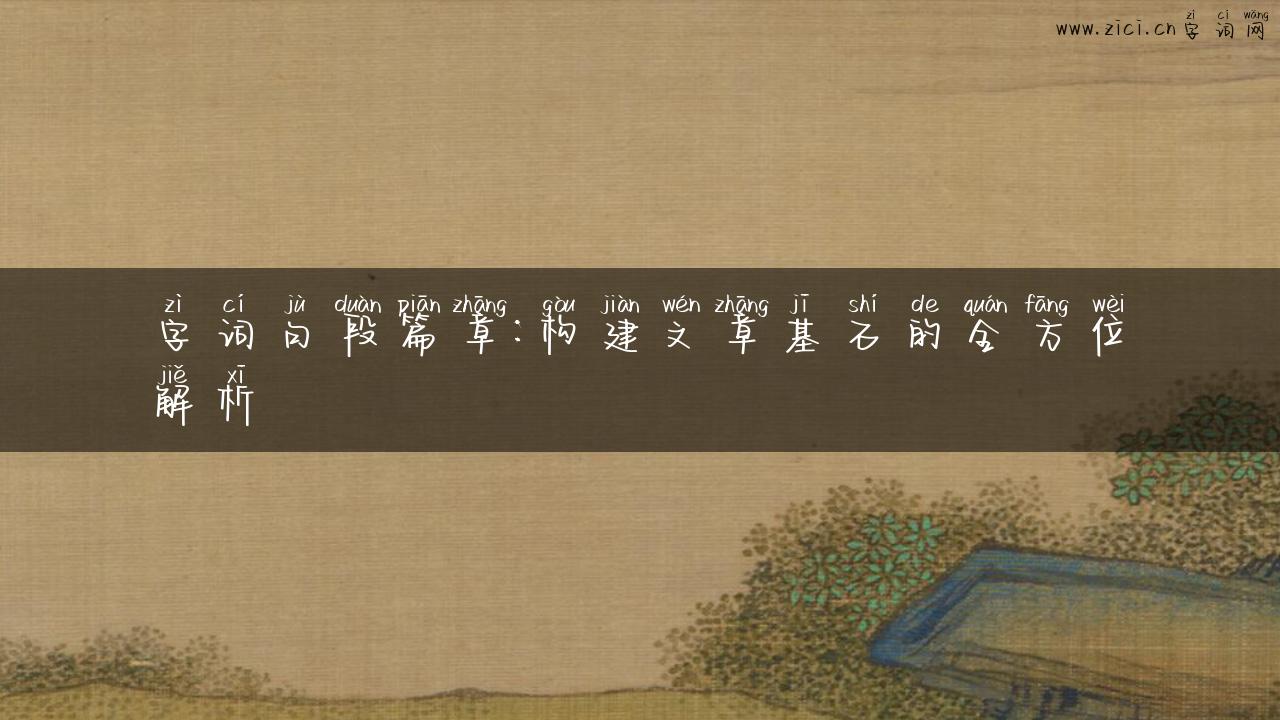 zì cí wǎng
www.zici.cn字词网
zì cí jù duàn piān zhāng gòu jiàn wén zhāng jī shí de quán fāng wèi
字词句段篇章:构建文章基石的全方位
jiě xī
解析